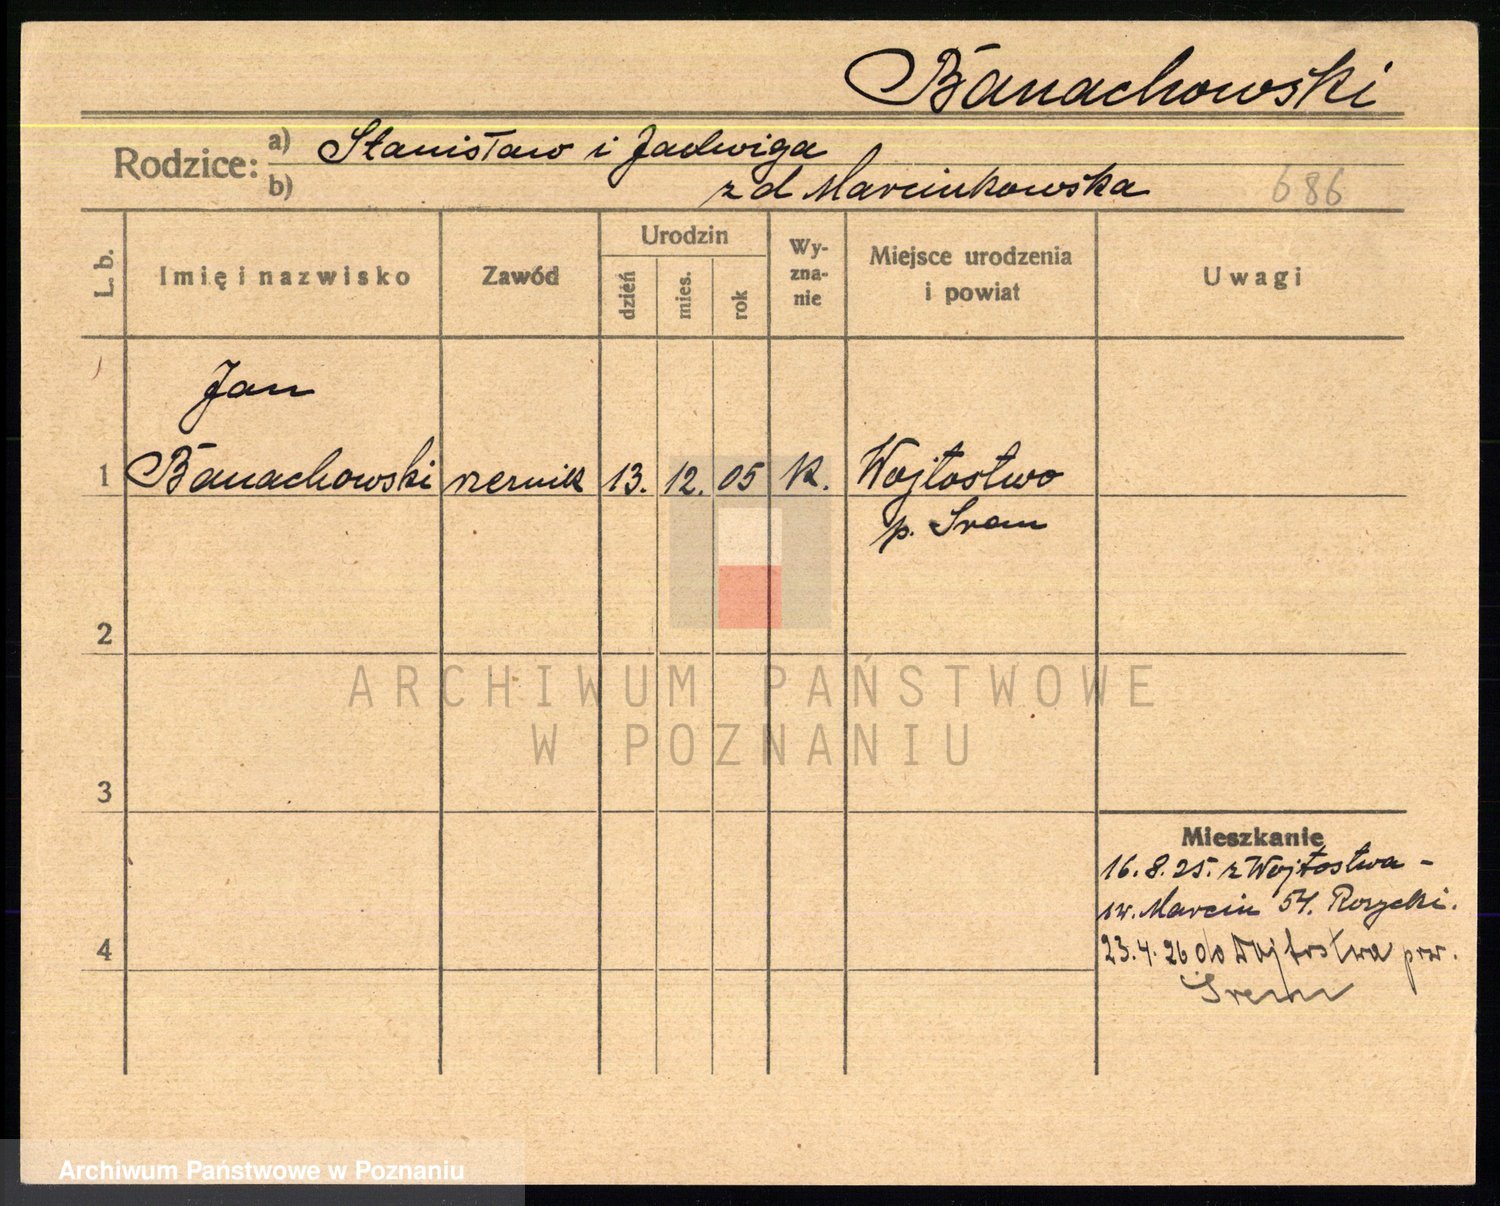 Banachowski
Rodzice:
a) Stanisław i Jadwiga
b) z d Marcinkowska
686
L. b.
Imię i nazwisko
Zawód
Urodzin
dzień
mies.
rok
Wy-
zna-
nie
Miejsce urodzenia
i powiat
Uwagi
Jan
1 Banachowski rzeźnik 13. 12. 05 k. Wojtostwo
p. Śrem
2
ARCHIWUM PAŃSTWOWE
W POZNANIU
3
Mieszkanie
16. 8. 25. z Wojtostwa -
św. Marcin 54. Rozycki.
4
23. 4. 26 do Wojtostwa pow.
Śrem
Archiwum Państwowe w Poznaniu